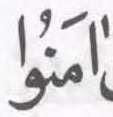 اٰمَنُوا